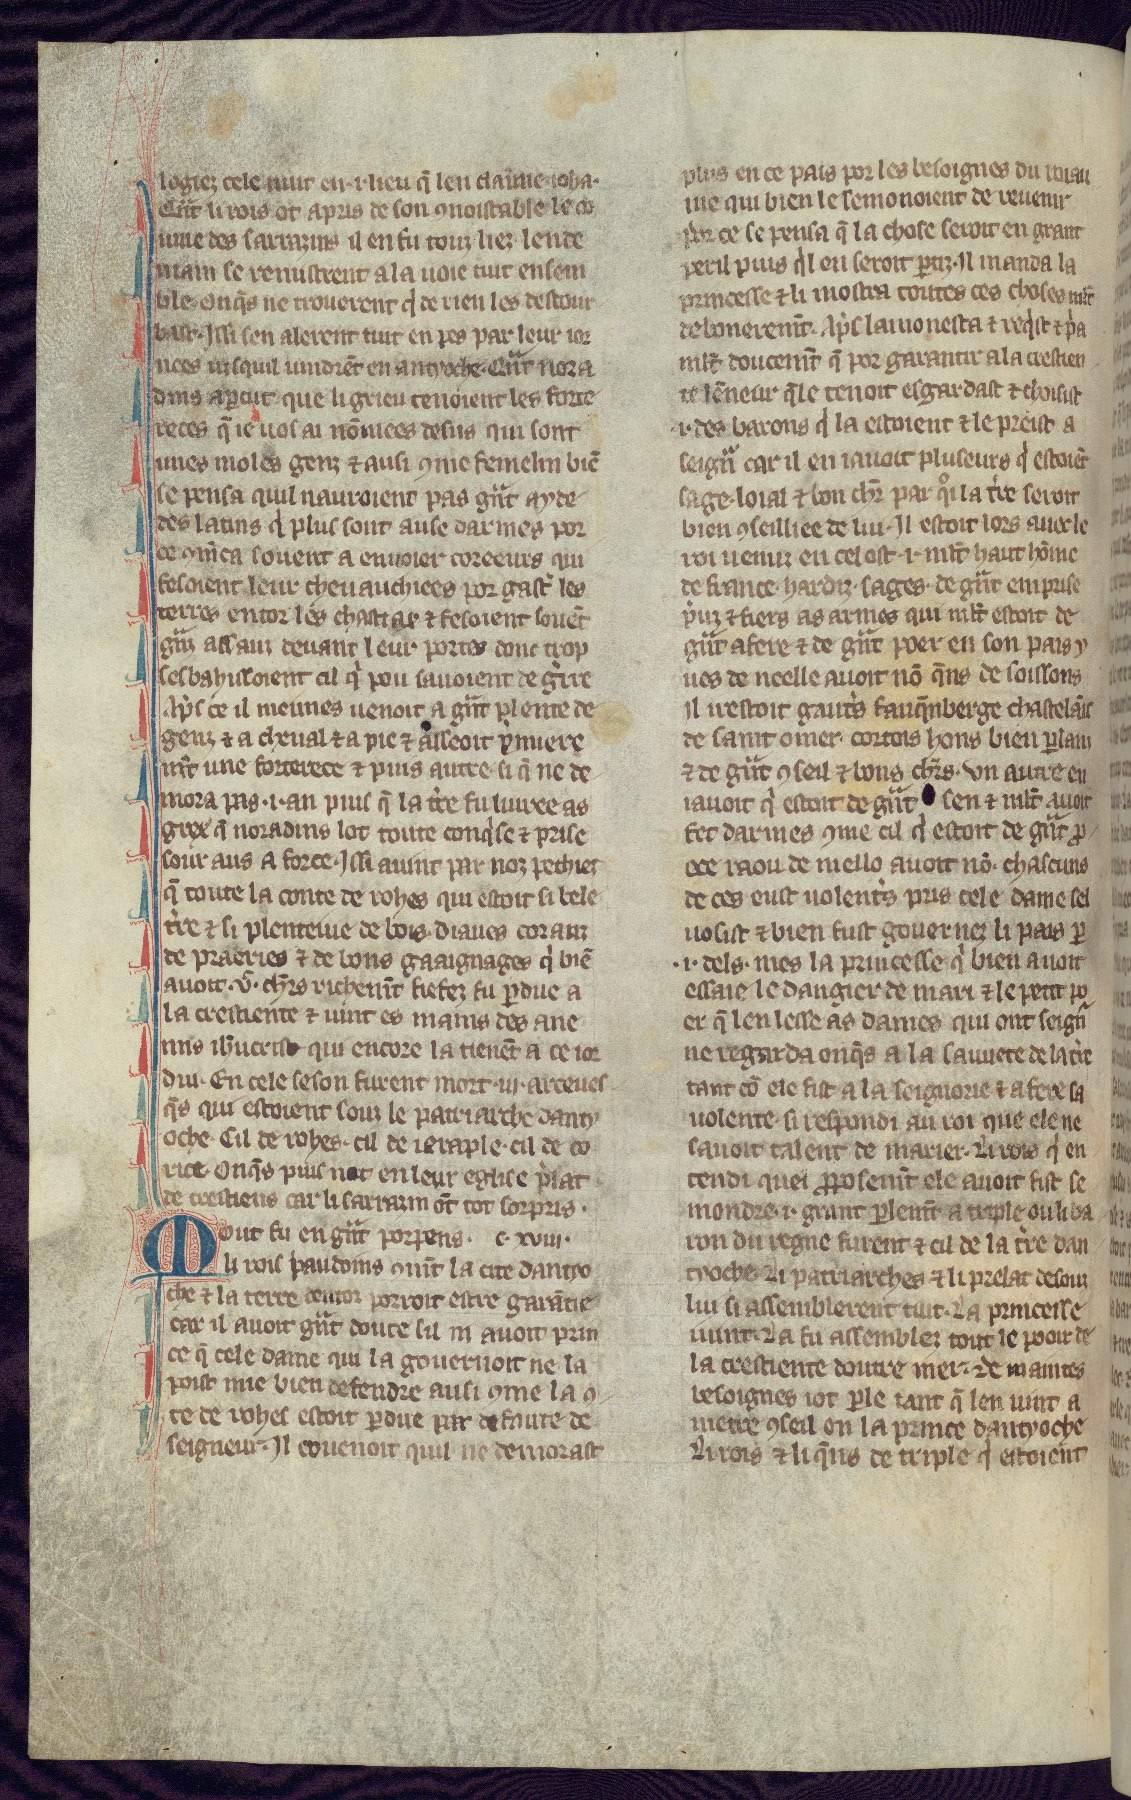 logiez cele nuit en .i. lieu q̃ len claime ioha.
Q̃nt li rois ot apris de son ꝯnoistable le co
uine des sarrazins il en fu touz liez. lende
main se remistrent a la uoie tuit ensem
ble. Onq̃s ne trouerent qͥ de rien les destour
bast. Issi sen alerent tuit en pes par leur ior
nees iusquil uindrẽt en antyoche. Q̃nt nora
dins aꝑcut que li grieu tenoient les forte
reces q̃ ie uos ai nõmees desus qui sont
unes moles genz ⁊ ausi ꝯme femelin biẽ
se pensa quil nauroient pas gñt ayde
des latins qͥ plus sont ause darmes por
ce ꝯmẽca souent a enuoier coreeurs qui
fesoient leur cheuauchiees por gast̾ les
terres entor les chastiax ⁊ fesoient souẽt
gñz assauz deuant leur portes donc trop
sesbahissoient cil qͥ pou sauoient de gͥre
Apͥs ce il meismes uenoit a gñt plente de
genz ⁊ a cheual ⁊ a pie ⁊ asseoit pͥmiere
mẽt une forterece ⁊ puis autre. si q̃ ne de
mora pas .i. an puis q̃ la t̾re fu liuree as
griex q̃ noradins lot toute conqͥse ⁊ prise
sour aus a force. Issi auint par noz pechiez
q̃ toute la conte de rohes qui estoit si bele
t̾re ⁊ si plenteiue de bois. diaues coranz
de praeries ⁊ de bons gaaignages qͥ biẽ
auoit .v.ͨ ch̾rs richemẽt fiefez fu ꝑdue a
la crestiente ⁊ uint es mains des ane
mis ih̃ucrist qui encore la tienẽt a ce ior
dui. En cele seson furent mort .iii. arceues
q̃s qui estoient souz le patriarche danty
oche. Cil de rohes. cil de ieraple. cil de co
rice. Onq̃s puis not en leur eglise pͥlat
de crestiens car li sarrazin õt tot sorpris.
Mout fu en gñt porpens. c. xviii.
li rois baudoins ꝯmẽt la cite dantyo
che ⁊ la terre dentor porroit estre garãtie
car il auoit gñt doute sil ni auoit prin
ce q̃ cele dame qui la gouernoit ne la
poist mie bien defendre ausi ꝯme la ꝯ
te de rohes estoit ꝑdue par defaute de
seigneur. Il couenoit quil ne demorast
plus en ce pais por les besoignes du roiau
me qui bien le semonoient de reuenir
por ce se pensa q̃ la chose seroit en grant
peril puis qͥl en seroit ꝑtiz. Il manda la
princesse ⁊ li mostra toutes ces choses ml̃t
debonerem̃t. Apͥs lamonesta ⁊ reqͥst ⁊ pͥa
ml̃t doucem̃t q̃ por garantir a la crestien
te lẽneur q̃le tenoit esgardast ⁊ choisist
.i. des barons qͥ la estoient ⁊ le preist a
seigñr car il en iauoit pluseurs qͥ estoiẽt
sage. loial ⁊ bon ch̾r par qͦi la t̾re seroit
bien ꝯseilliee de lui. Il estoit lors auec le
roi uenuz en cel ost .i. ml̃t haut hõme
de france. hardiz. sages. de gñt emprise
pͥuz ⁊ fiers as armes qui ml̃t estoit de
gñt afere ⁊ de gñt poer en son pais y
ues de neelle auoit nõ q̃ns de soissons
Il restoit gautiͥs fauq̃nberge chastelãis
de saint omer. cortois hons bien ꝑlanz
⁊ de gñt ꝯseil ⁊ bons ch̾rs. Un autre en
iauoit qͥ estoit de gñt sen ⁊ ml̃t auoit
fet darmes ꝯme cil qͥ estoit de gñt ꝓ
ece raou de mello auoit nõ. chascuns
de ces eust uolent̾s pris cele dame sel
uosist ⁊ bien fust gouernez li pais ꝑ
.i. dels. mes la princesse qͥ bien auoit
essaie le dangier de mari ⁊ le petit po
er q̃ len lesse as dames qui ont seigñr
ne regarda onq̃s a la sauuete de la t̾re
tant cõ ele fist a la seignorie ⁊ a fere sa
uolente. si respondi au roi que ele ne
sauoit talent de marier. Li rois qͥ en
tendi quei ꝓposem̃t ele auoit fist se
mondre .i. grant ꝑlem̃t a triple ou li ba
ron du regne furent ⁊ cil de la t̾re dan
tyoche. Li patriarches ⁊ li prelat desouz
lui si assemblerent tuit. La princesse
uint. La fu assemblez tout le pooir de
la crestiente doutre mer. ⁊ de maintes
besoignes iot ꝑle tant q̃ len uint a
metre ꝯseil en la prince dantyoche
Li rois ⁊ li q̃ns de triple qͥ estoient